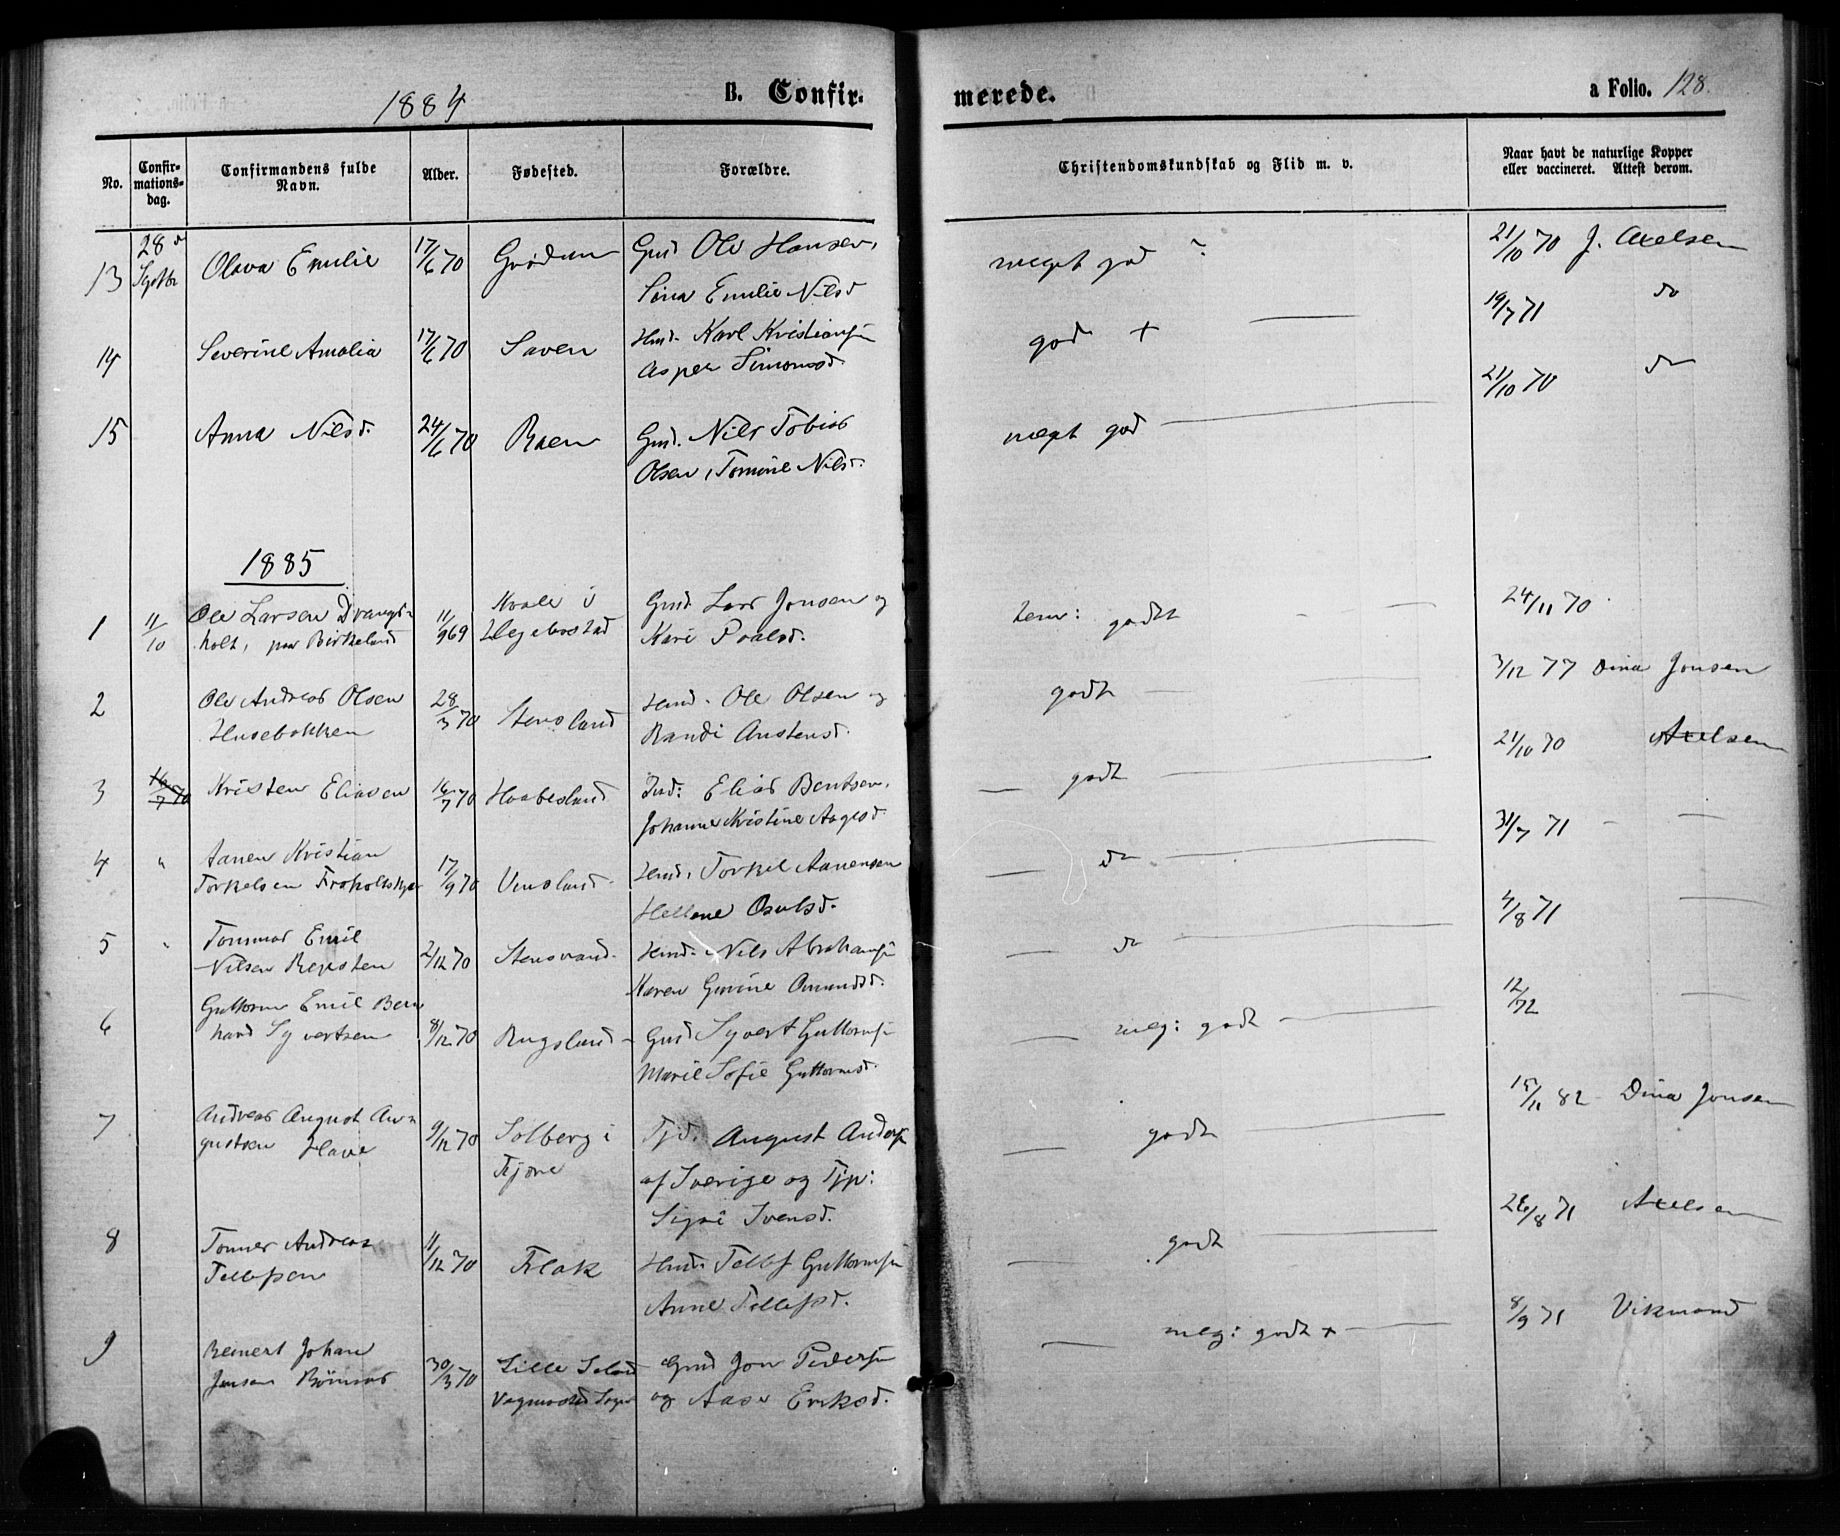 1884 B. Confirmerede. a Folio. 128.
No. Confirmationsdag. Confirmandens fulde Navn. Alder. Fødested. Forældre. Christendomskundskab og Flid m. v. Naar havt de naturlige Kopper eller vaccineret. Attest derom.
13 28d Septbr Olava Emilie 17/6 70 Grødum Gmd Ole Hansen, meget god 21/10 70 J. Axelsen
Sina Emilie Nilsd
14 Severine Amalia 17/6 70 Saven Hmd. Karl Kristians god + 19/7 71 do
Simonsd.
15 Anna Nilsd. 24/6 70 Raen Gmd. Nils Tobias meget god 21/10 70 do
Olsen, Tomine Nilsd.
1885
1 11/10 Ole Larsen Drangs- 11/9 69 Kvale i Gmd Lars Jonsen og tem: godt 24/11 70
holt, paa Birkeland Hegebostad Kari Paalsd.
2 Ole Andreas Olsen 28/3 70 Stensland Hmd. Ole Olsen og godt 3/12 77 Dina Jonsen
Husebakken Randi Austensd.
3 16/7 70 Kristen Eliasen 16/7 70 Haabesland Elias Bentsen, godt 21/10 70 Axelsen
Johanne Kristine Aagesd.
4 " Aanen Kristian 17/9 70 Vensland Hmd. Torkel Aanensen do 31/7 71
Torkelsen Hellene Osulsd.
5 " Tommas Emil 2/12 70 Stensvand Hmd. Nils Abrahams do 4/8 71
Nilsen Repsten Karen Gurine Omundsd.
6 Guttorm Emil Bern 8/12 70 Rugsland Gmd Syvert Guttorms meg: godt 12/72
hard Syvertsen Marie Sofie Guttormsd.
7 Andreas August Au- 9/12 70 Solberg i Tjd. August Anders godt 15/11 82 Dina Jonsen
gustsen Have af Sverige og Tjp:
Signe Svensd.
8 Tomes Andreas 11/12 70 Flak Hmd. Tellef Guttorms godt 26/8 71 Axelsen
Tellefsen Anne Tellefsd.
9 Reinert Johan 30/3 70 Lille Gmd Jon Peders meg: godt + 8/9 71 Vikmand
Jensen og Aase Eriksd.